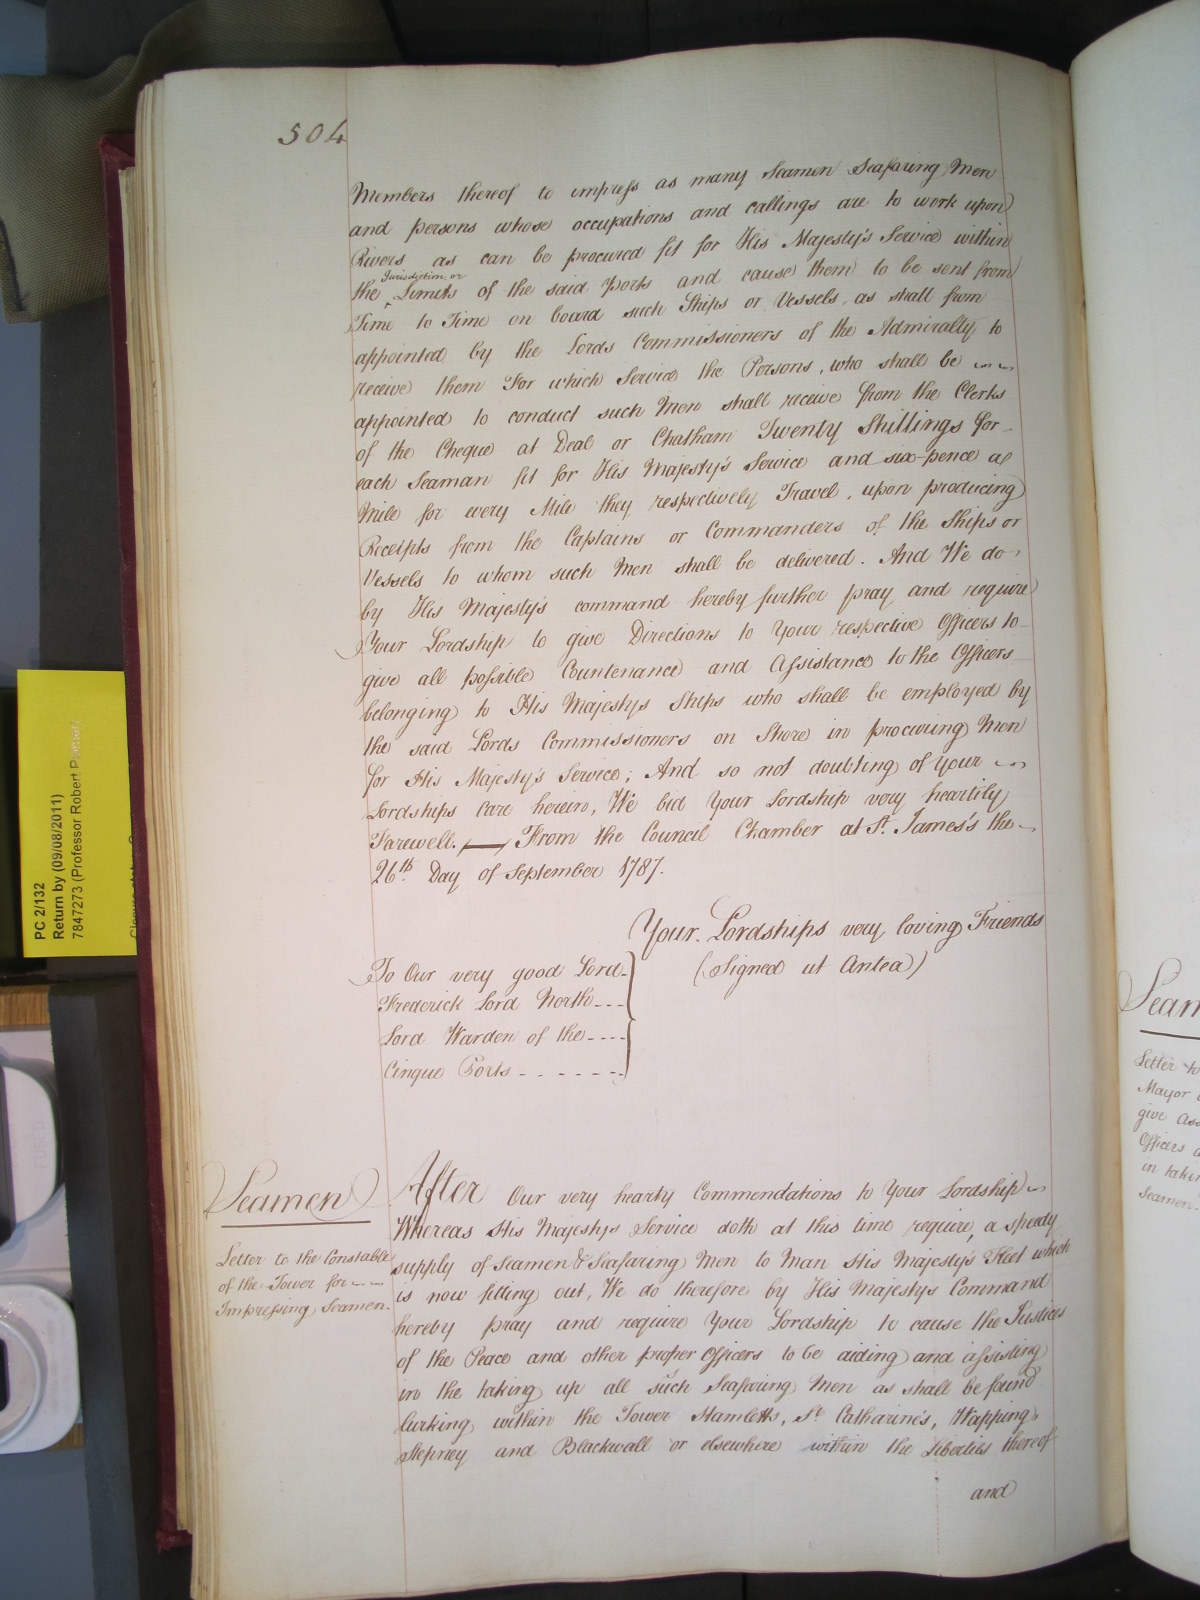 504
Members thereof to impress as many Seamen Seafaring Men
and persons whose occupations and callings are to work upon
Rivers as can be procured fit for His Majesty's Service within
Jurisdiction or
the Limits of the said Ports and cause them to be sent from
Time to Time on board such Ships or Vessels, as shall from
appointed by the Lords Commissioners of the Admiralty to
receive them For which Service the Persons, who shall be
appointed to conduct such Men shall receive from the Clerks
of the Cheque at Deal or Chatham Twenty Shillings for
each Seaman fit for His Majesty's Service and six-pence a
Mile for every Mile they respectively Travel, upon producing
Receipts from the Captains or Commanders of the Ships or
Vessels to whom such Men shall be delivered. And We do
by His Majesty's command hereby further pray and require
Your Lordship to give Directions to Your respective Officers to
give all possible Countenance and Assistance to the Officers
belonging to His Majestys Ships who shall be employed by
the said Lords Commissioners on Shore in procuring Men
for His Majesty's Service; And so not doubting of Your
Lordships Care herein, We bid Your Lordship very heartily
Farewell. — From the Council Chamber at St. James's the
26th. Day of September 1787.
Your Lordships very loving Friends
(Signed ut Antea)
To Our very good Lord
Frederick Lord North
Lord Warden of the
Cinque Ports
Seamen
Letter to the Constable
of the Tower for
Impressing Seamen.
After Our very hearty Commendations to Your Lordship
Whereas His Majestys Service doth at this time require, a speedy
supply of Seamen & Seafaring Men to Man His Majesty's Fleet which
is now fitting out, We do therefore by His Majestys Command
hereby pray and require Your Lordship to cause the Justices
of the Peace and other proper Officers to be aiding and assisting
in the taking up all such Seafaring Men as shall be found
lurking within the Tower Hamletts, St Catharine's, Wapping,
Stepney and Blackwall or elsewhere within the Liberties thereof
and
PC 2/132
Return by (09/08/2011)
7847273 (Professor Robert
Seam
Letter to
Mayor
give Ass
Officers
in takin
Seamen.